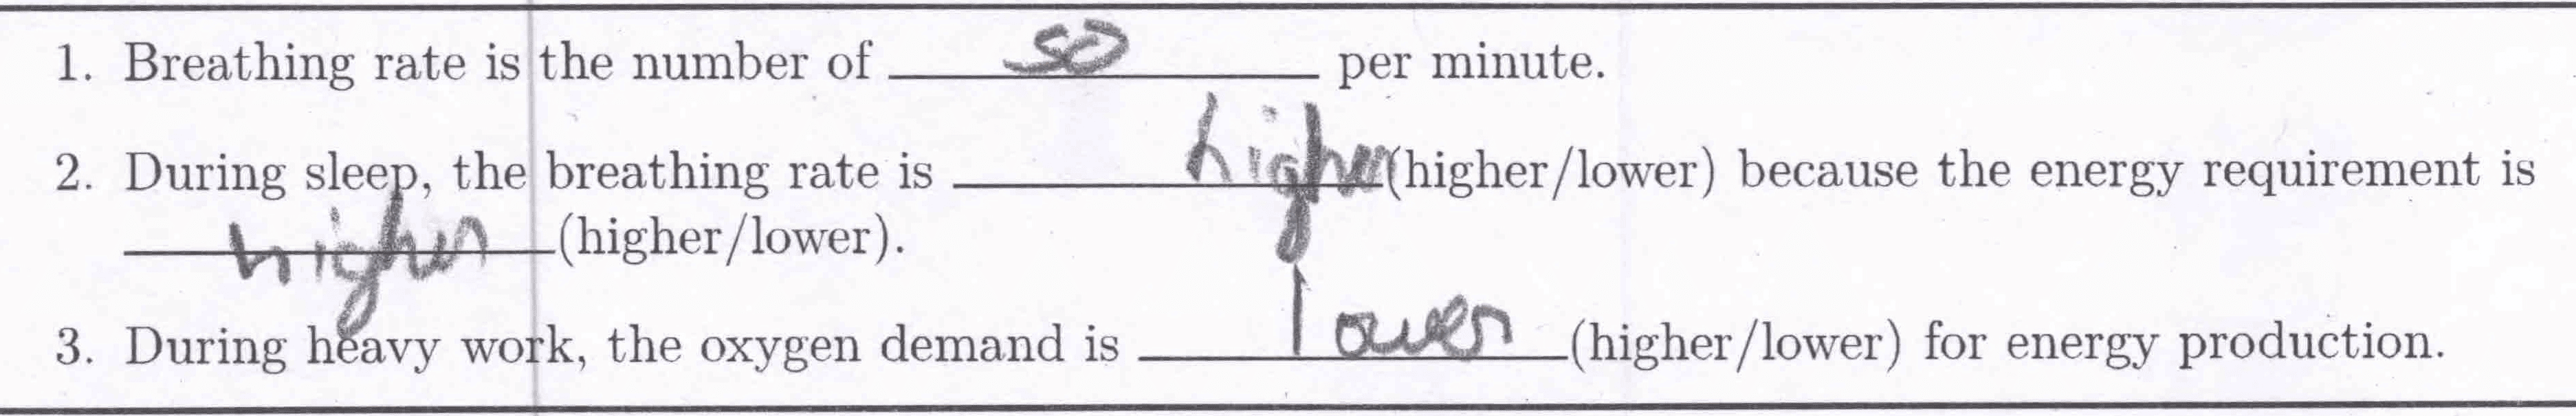 1. Breathing rate is the number of 50 per minute.
2. During sleep, the breathing rate is higher (higher/lower) because the energy requirement is
higher (higher/lower).
3. During heavy work, the oxygen demand is lower (higher/lower) for energy production.